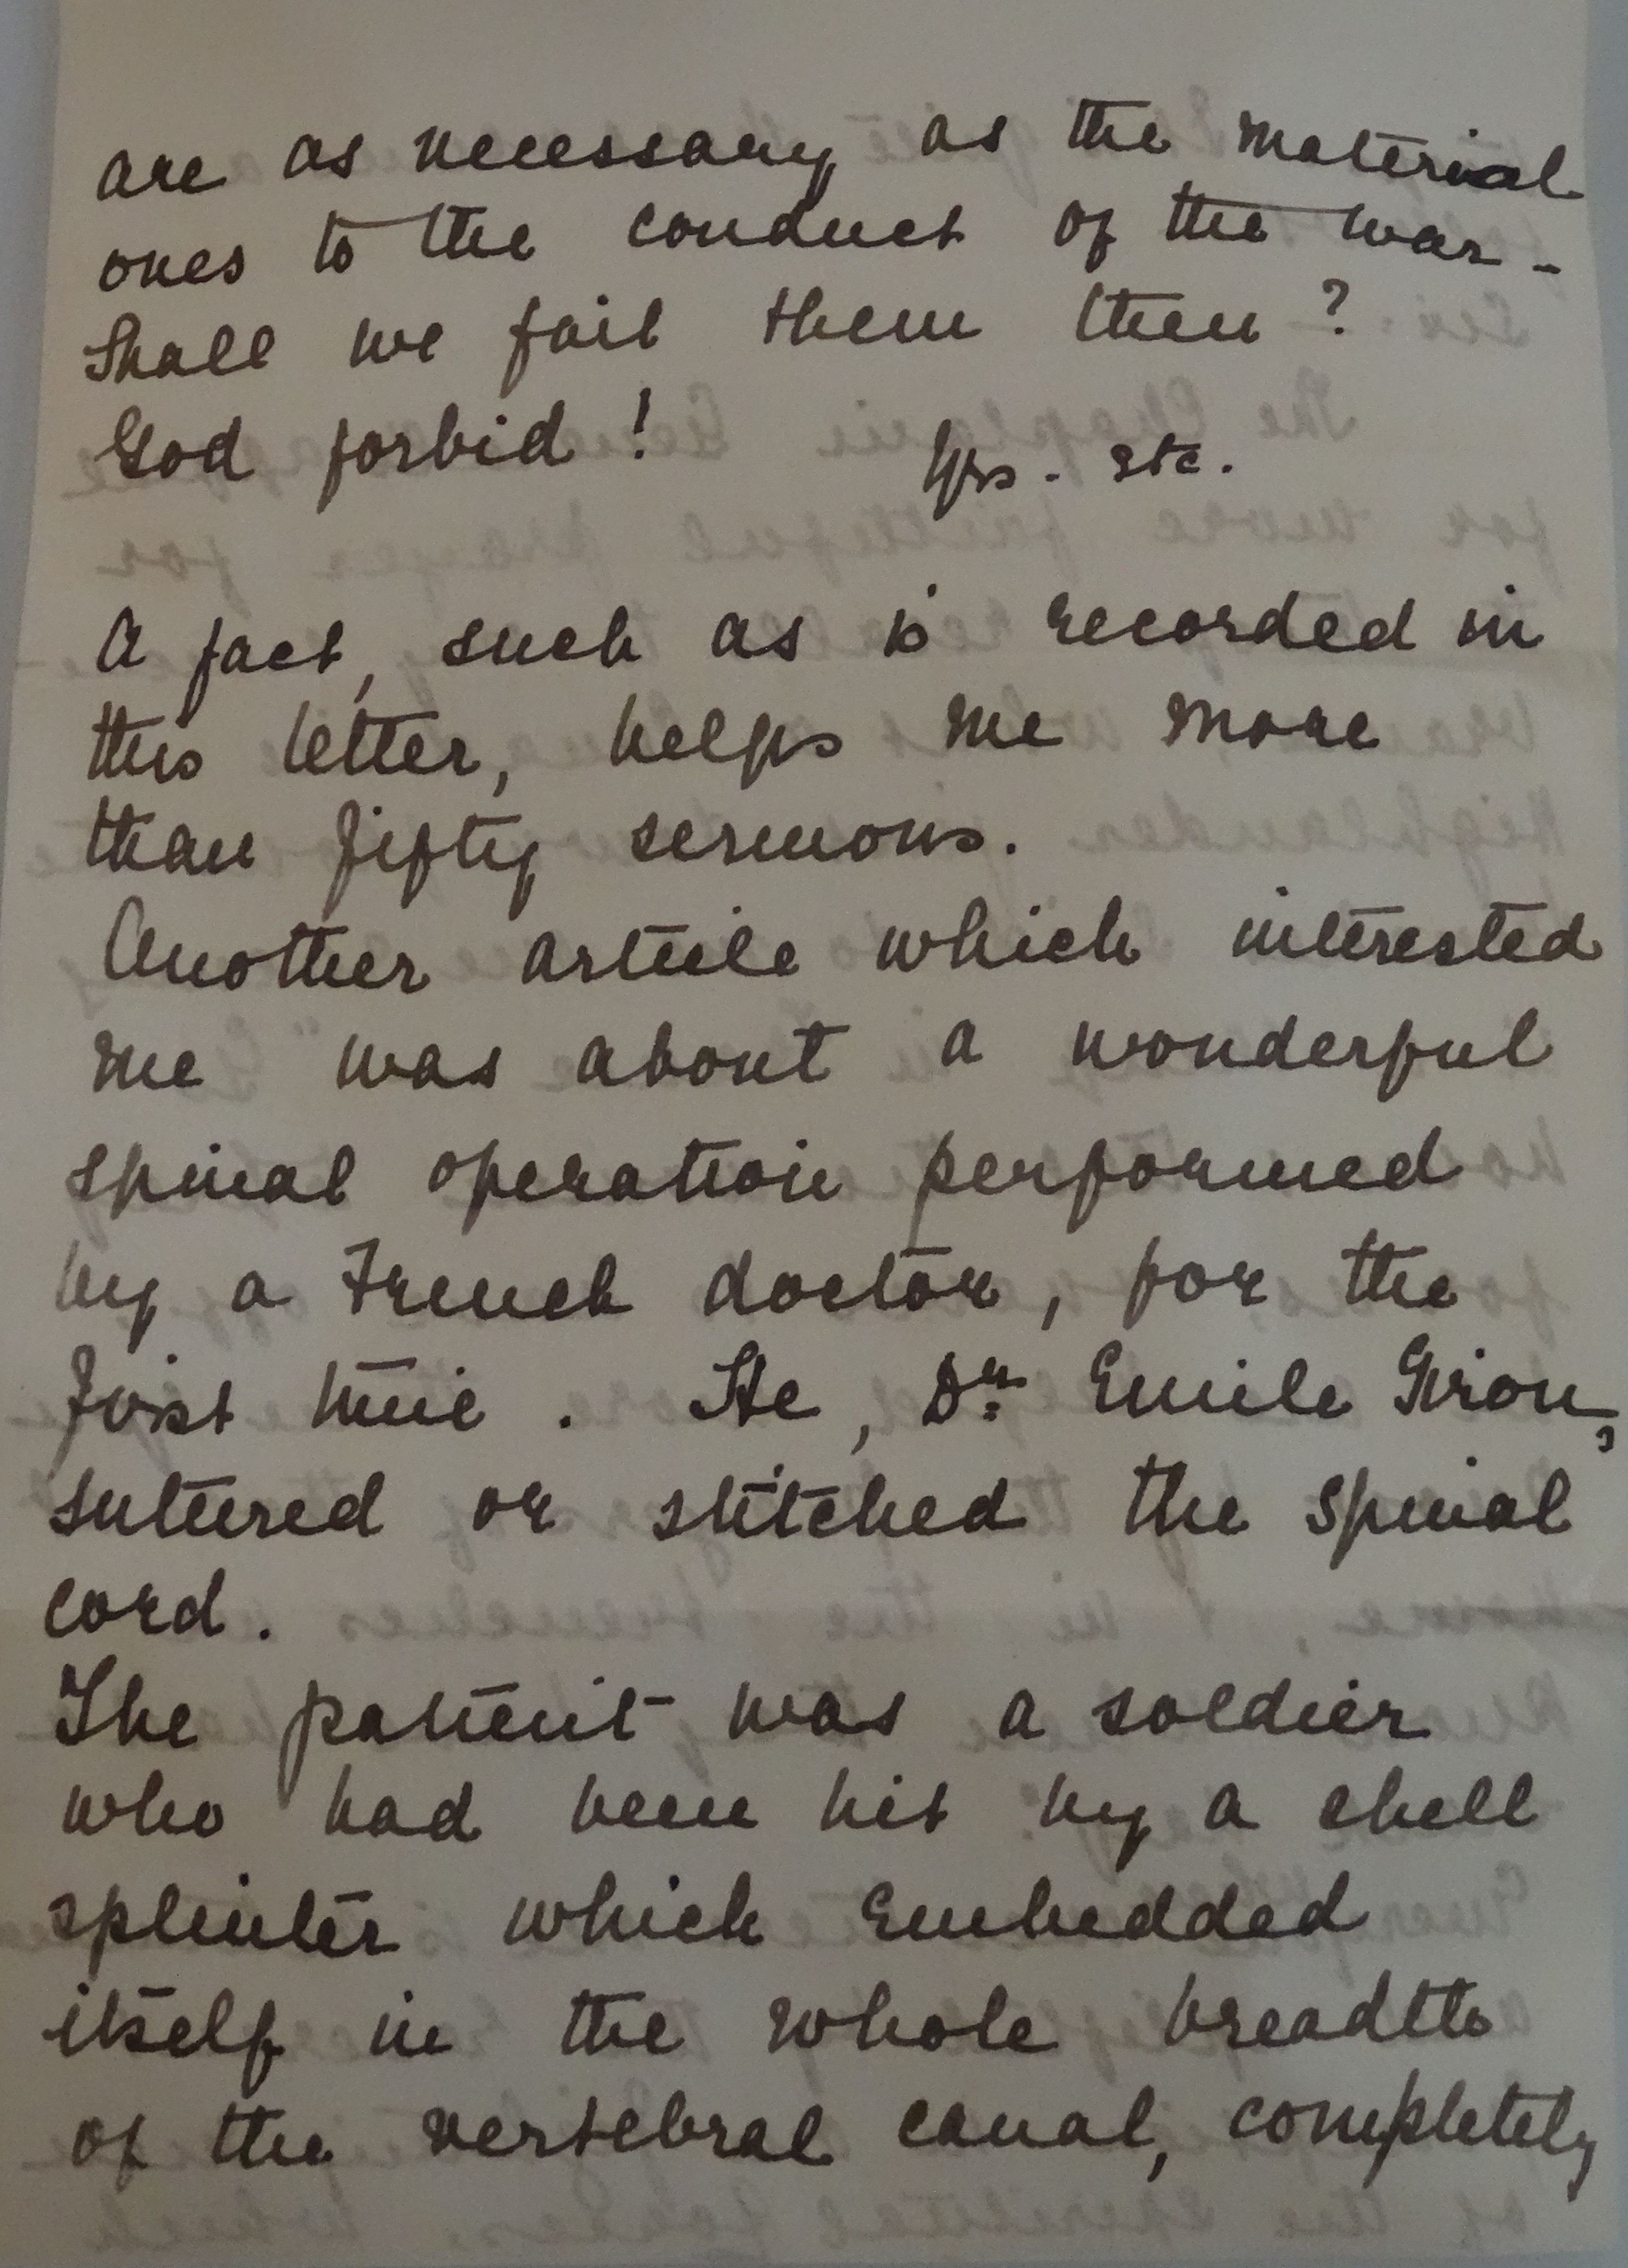 are as necessary as the material
ones to the conduct of the war -
Shall we fail them then ?
God forbid ! Yrs. etc.
A fact, such as is recorded in
this letter, helps me more
than fifty sermons.
Another article which interested
me was about a wonderful
spinal operation performed
by a French doctor, for the
first time. He, Dr. Emile Girou,
sutured or stitched the spinal
cord.
The patient was a soldier
who had been hit by a shell
splinter which embedded
itself in the whole breadth
of the vertebral canal, completely